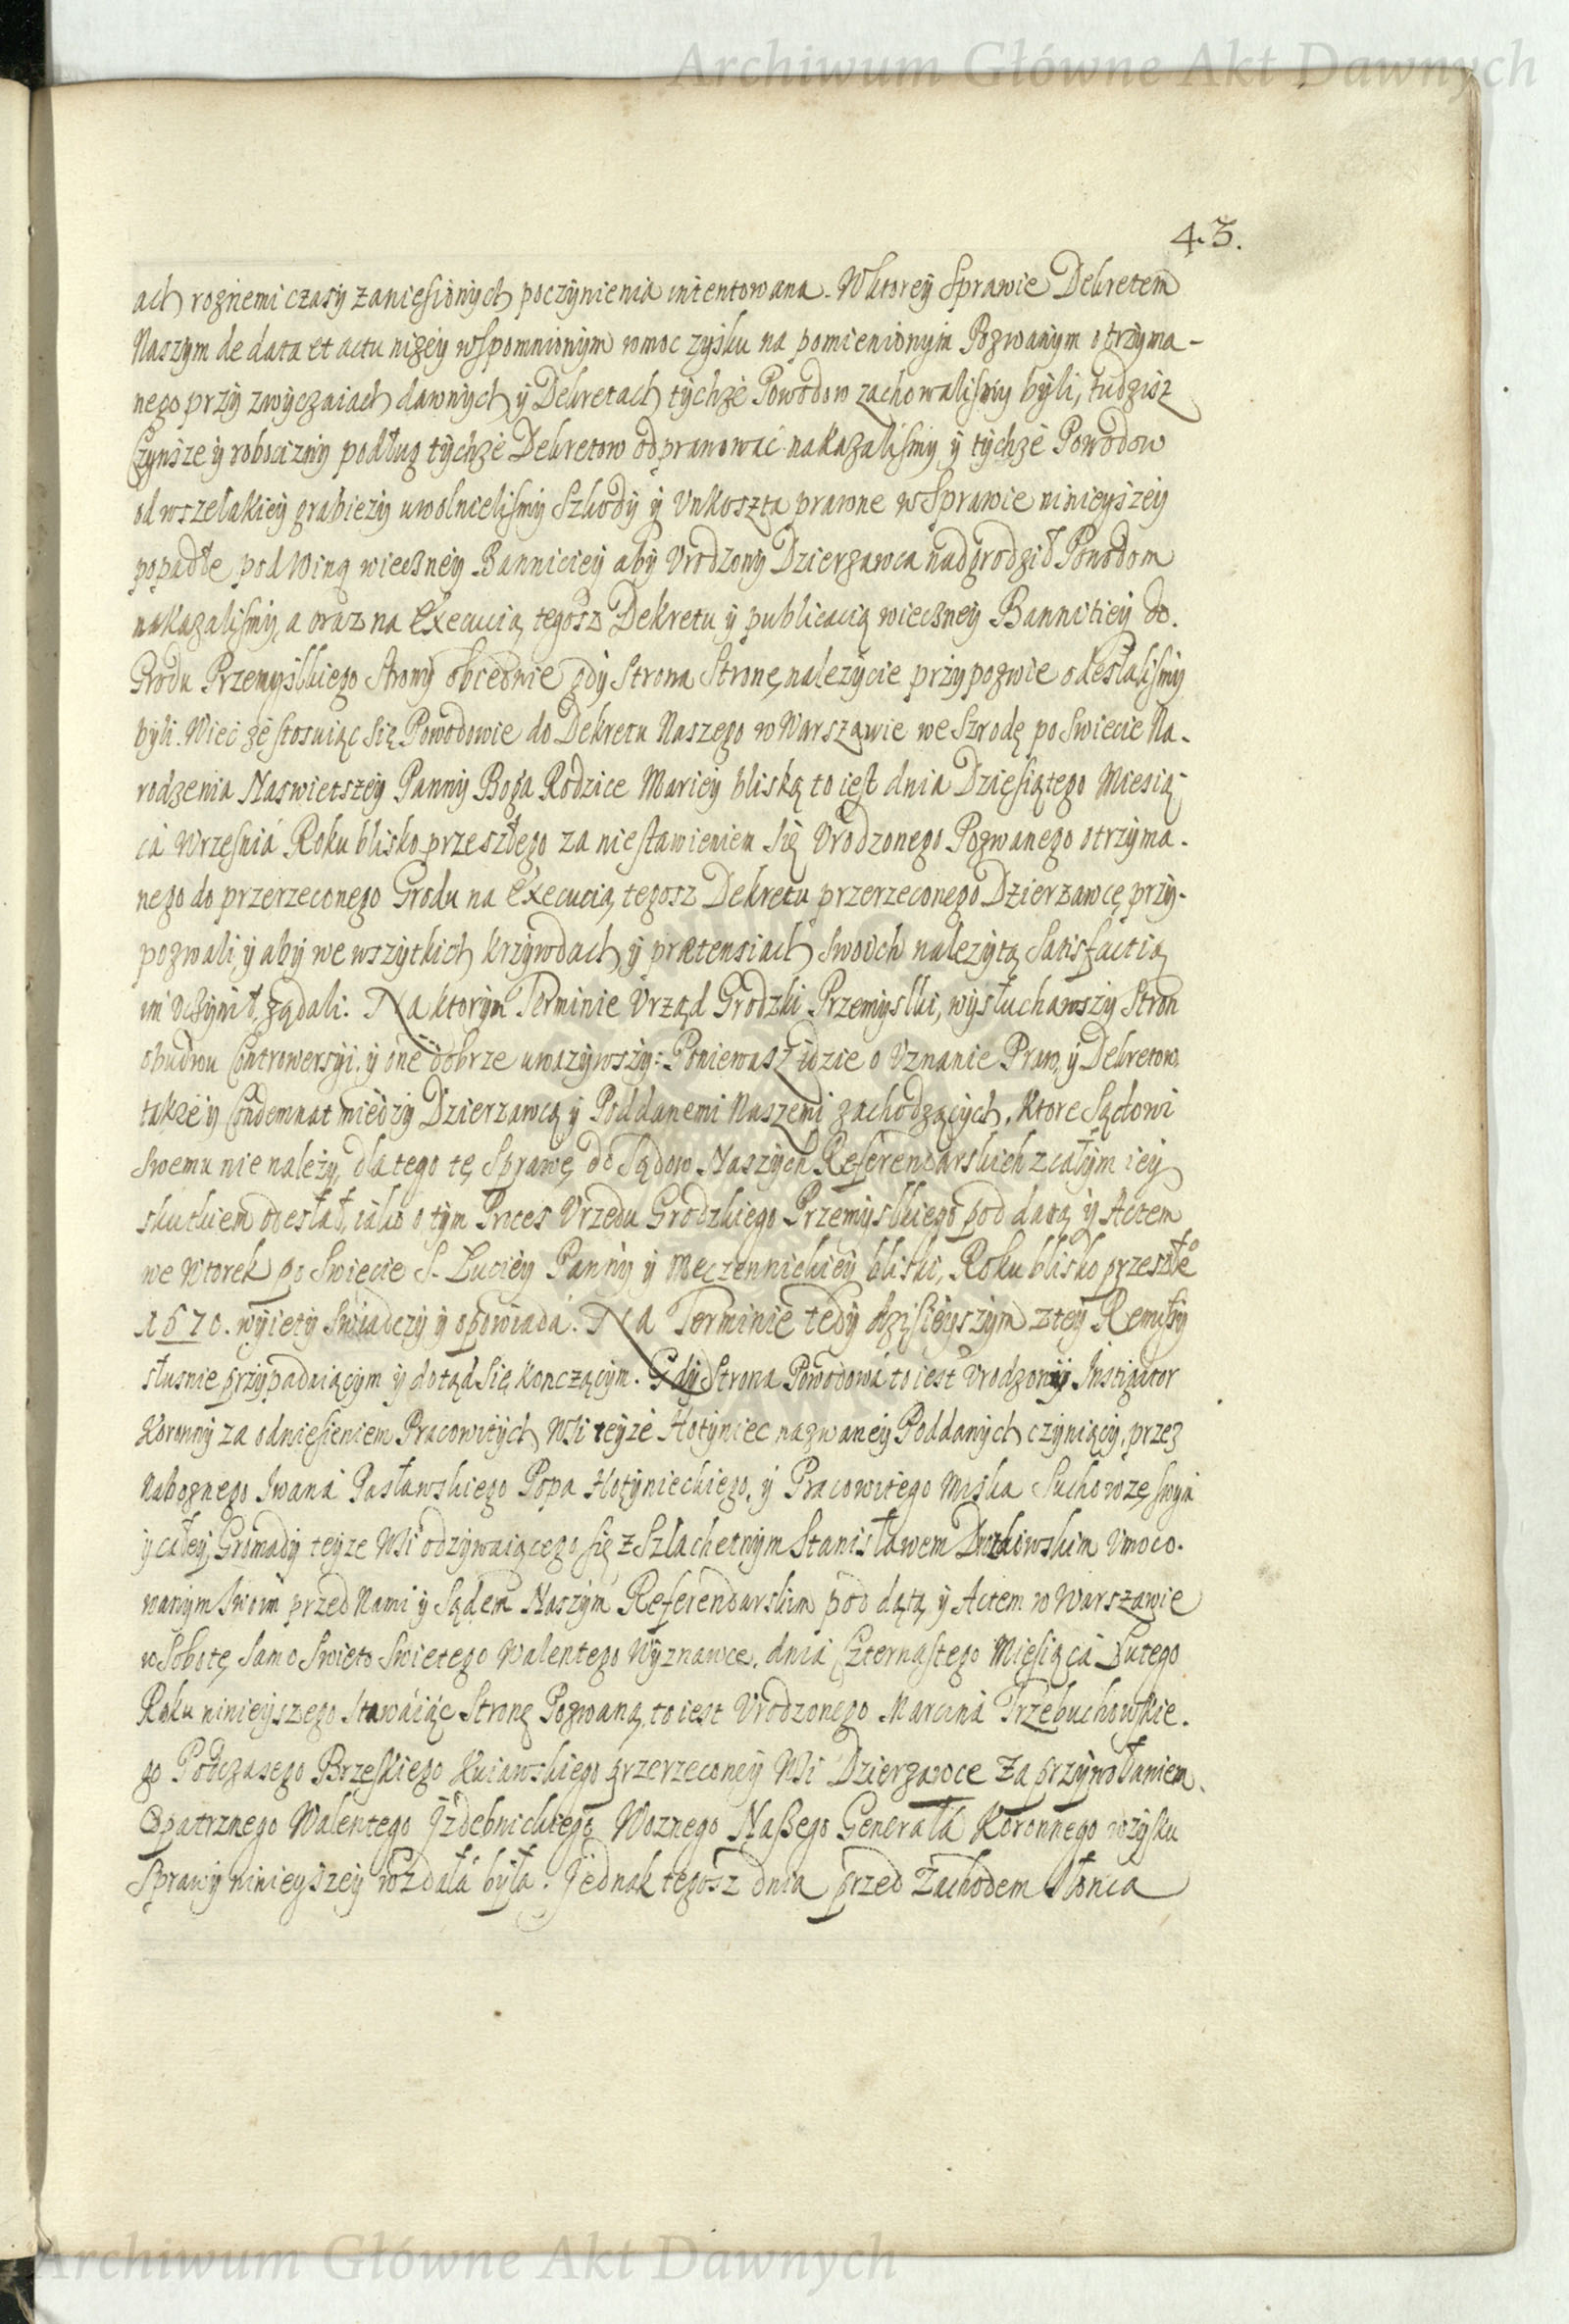 Archiwum Główne Akt Dawnych
43.
ach rożnemi czasy zaniesionych poczynienia intentowana. Wktorey Sprawie Dekretem
Naszym de data et actu niżey wspomnionym wmoc zysku na pomienionym Pozwanym otrzyma-
nego przy zwyczaiach dawnych y Dekretach tychże Powodow zachowalismy byli, tudziesz
Czynsze y robocizny podług tychże Dekretow odprawować nakazalismy, y tychże Powodow
od wszelakiey grabieży uwolnielismy Szkody y Vnkoszta prawne w Sprawie ninieyszey
popadłe pod Winą wieczney Banniciey aby Vrodzony Dzierzawca nadgrodził Powodom
nakazalismy, a oraz na Execucią tegosz Dekretu y publicacią wieczney Bannitiey do
Grodu Przemyslkiego Strony obiedwie gdy Strona Stronę należycie przypozwie odesłalismy
byli. Wiec że stosuiąc się Powodowie do Dekretu Naszego w Warszawie we Szrodę po Swiecie Na-
rodzenia Naswietszey Panny Boga Rodzice Mariey bliską to iest dnia Dziesiątego Miesią-
ca Wrzesnia Roku blisko przeszłego za niestawieniem się Vrodzonego Pozwanego otrzyma-
nego do przerzeconego Grodu na Execucią tegosz Dekretu przerzeconego Dzierzawcę przy-
pozwali, y aby we wszytkich krzywdach y prætensiach swoich należytą Satisfactią
im uczynił, żądali. Na ktorym Terminie Vrząd Grodzki Przemyslki, wysłuchawszy Stron
obudwu Controwersyi, y one dobrze uwazywszy: Poniewasz idzie o Vznanie Praw, y Dekretow
także y Condemnat miedzy Dzierzawcą y Poddanemi Naszemi zachodzących, ktore Sądowi
swemu nie należy, dla tego tę Sprawę do Sądow Naszych Referendarskich z całym iey
skutkiem odesłał, iako o tym Proces Vrzedu Grodzkiego Przemyslkiego pod datą y Actem
we Wtorek po Swiecie S. Luciey Panny y Męczennickiey bliski, Roku blisko przeszłe°
1670. wyięty Swiadczy y opowiada. Na Terminie tedy dzisieyszym z tey Remissy
słusnie przypadaiącym y dotąd się konczącym. Gdy Strona Powodowa to iest Vrodzony Instigator
Koronny za odniesieniem Pracowitych Wsi teyże Hotyniec nazwaney Poddanych czyniący, przez
Nabożnego Iwana Pasławskiego Popa Hotynieckiego, y Pracowitego Miska Suchowzę, swym
y całey Gromady teyże Wsi odzywaiącego się z Szlachetnym Stanisławem Drozkowskim Vmoco-
wanym swoim przed Nami y Sądem Naszym Referendarskim pod datą y Actem w Warszawie
w Sobotę samo Swieto Swietego Walentego Wyznawce, dnia Czternastego Miesiąca Lutego
Roku ninieyszego stawaiąc Stronę Pozwaną, to iest Vrodzonego Marcina Trzebuchowskie-
go Podczasego Brzeskiego Kuiawskiego przerzeconey Wsi Dzierzawce za przywołaniem
Opatrznego Walentego Jzdebnickiego Woznego Naszego Generała Koronnego wzysku
Sprawy ninieyszey wzdała była. Jednak tegosz dnia przed Zachodem Słonca
Archiwum Główne Akt Dawnych